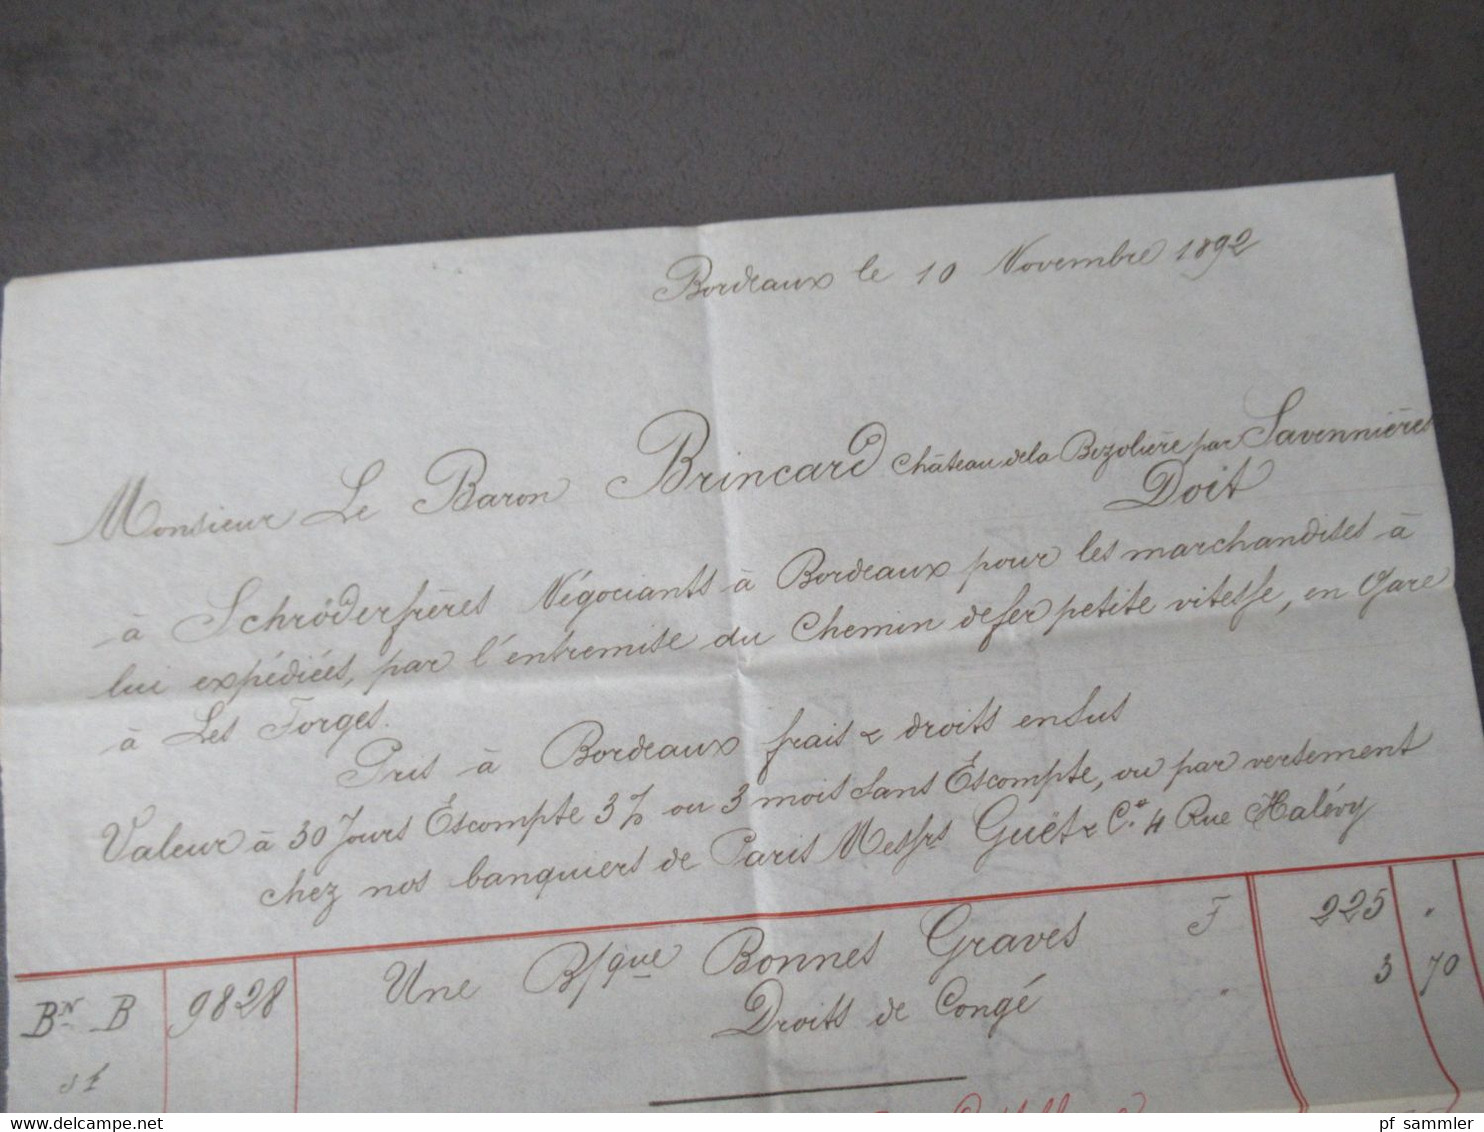 Bordeaux le 10 Novembre 1892
Monsieur Le Baron Brincard Château de la Bezolière par Savennières
Doit
à Schröder frères Négociants à Bordeaux pour les marchandises à
lui expédiées, par l'entremise du Chemin de fer petite vitesse, en Gare
à Les Forges.
Pris à Bordeaux frais & droits en sus
Valeur à 30 Jours Escompte 3% ou 3 mois sans Escompte, ou par versement
chez nos banquiers de Paris Messrs Guet & Ce. 4 Rue Halévy
Bn B 9828 Une B/que Bonnes Graves F 225 "
Droits de Congé " 3 70
pf_sammler